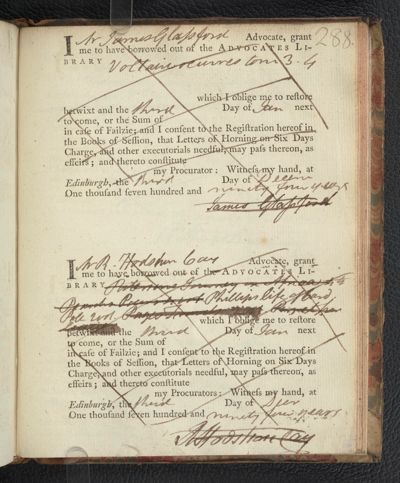 288.
I Mr James Glassford Advocate, grant
me to have borrowed out of the ADVOCATES LI-
BRARY Voltaire oeuvres tom 3. 4
which I oblige me to reſtore
betwixt and the third Day of Jan next
to come, or the Sum of
in caſe of Failzie; and I conſent to the Regiſtration hereof in
the Books of Seſſion, that Letters of Horning on Six Days
Charge, and other executorials needful, may paſs thereon, as
effeirs; and thereto conſtitute
my Procurator: Witneſs my hand, at
Edinburgh, the third Day of Decem
One thouſand ſeven hundred and ninety four years
James Glassford
I Mr R. Hodshon Cay Advocate, grant
me to have borrowed out of the ADVOCATES LI-
BRARY
Phillips life of Card
Pole vol.
which I oblige me to reſtore
betwixt and the third Day of Jan next
to come, or the Sum of
in caſe of Failzie; and I conſent to the Regiſtration hereof in
the Books of Seſſion, that Letters of Horning on Six Days
Charge, and other executorials needful, may paſs thereon, as
effeirs; and thereto conſtitute
my Procurators: Witneſs my hand, at
Edinburgh, the third Day of Decr
One thouſand ſeven hundred and ninety four years
R Hodshon Cay